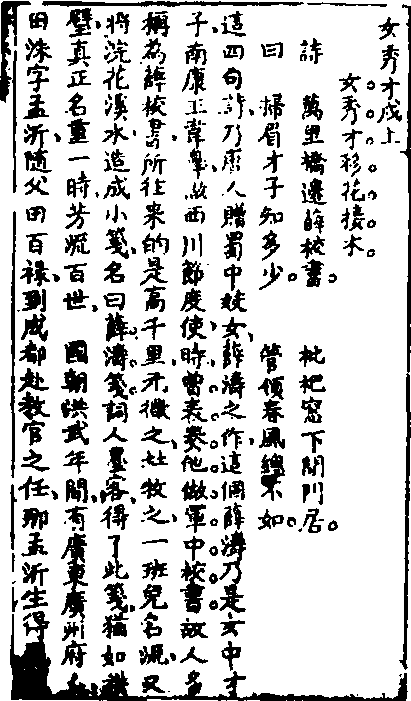 女秀才成上
女秀才移花接木
詩　萬里橋邊薛校書　枇杷窓下閉門居
曰　掃眉才子知多少　管領春風總不如
這四句詩乃唐人贈蜀中妓女薛濤之作這個薛濤乃是女中才
子南康王韋皐做西川節度使時曾表奏他做軍中校書故人多
稱為薛校書所往來的是高千里元微之杜牧之一班兒名流又
將浣花溪水造成小箋名曰薛濤箋詞人墨客得了此箋猶如拱
璧真正名重一時芳流百世　國朝洪武年間有廣東廣州府人
田洙字孟沂隨父田百祿到成都赴教官之任那孟沂生得風